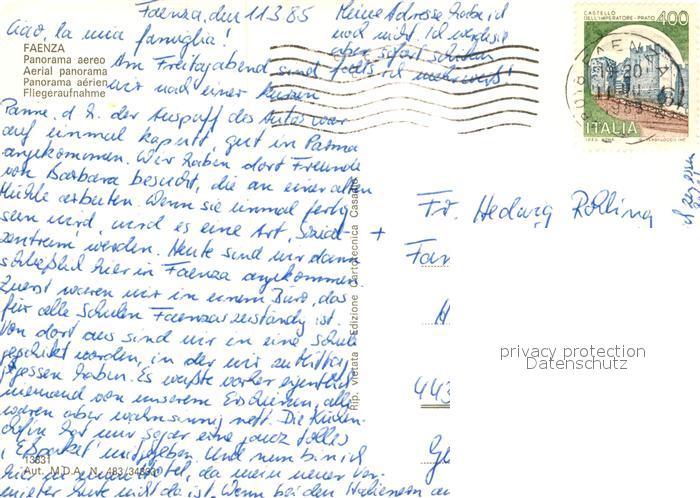 Faenza, den 11.3.85
Ciao, la mia
famiglia!
Am Freitagabend sind
wir nach einer kurzen
Panne, d. h. der Auspuff des Autos war
auf einmal kaputt, gut in Parma
angekommen. Wir haben dort Freunde
von Barbara besucht, die an einer alten
Mühle arbeiten. Wenn sie einmal fertig
sein wird, wird es eine Art Sozial-
zentrum werden. Heute sind wir dann
schließlich hier in Faenza angekommen.
Zuerst waren wir in einem Büro, das
für alle Schulen Faenzas zuständig ist.
Von dort aus sind wir in eine Schule
geschickt worden, in der wir zu Mittag
gegessen haben. Es wußte vorher eigentlich
niemand von unserem Erscheinen, alle
waren aber wahnsinnig nett. Die Küchen-
chefin hat mir sogar eine ganz tolles
"Eßpaket" mitgegeben. Und nun bin ich
hier in einem Hotel, da mein neuer Ver-
mieter heute nicht da ist. Wenn bei den Italienern
Meine Adresse habe ich
noch nicht. Ich werde sie
aber sofort schicken
falls ich mehr weiß!
FAENZA
Panorama aereo
Aerial panorama
Panorama aérien
Fliegeraufnahme
13831
Aut. M.D.A. N. 483/
Rip. vietata - Edizione Cartotecnica Casa
CASTELLO
DELL'IMPERATORE - PRATO 400
ITALIA
FAENZA
Fr. Hedwig Rolling
Fam
443
privacy protection
Datenschutz